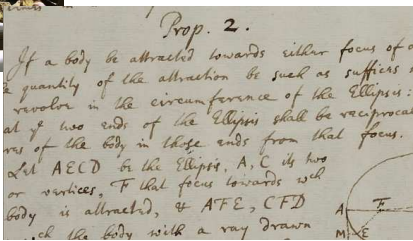 Prop. 2.
If a body be attracted towards either focus of
quantity of the attraction be such as suffices
revolve in the circumference of the Ellipsis:
at yᵉ two ends of the Ellipsis shall be reciprocal
of the body in those ends from that focus.
Let AECD be the Ellipsis, A, C its two
or vertices, F that focus towards wᶜʰ
body is attracted, & AFE, CFD
the body with a ray drawn
A F
M E